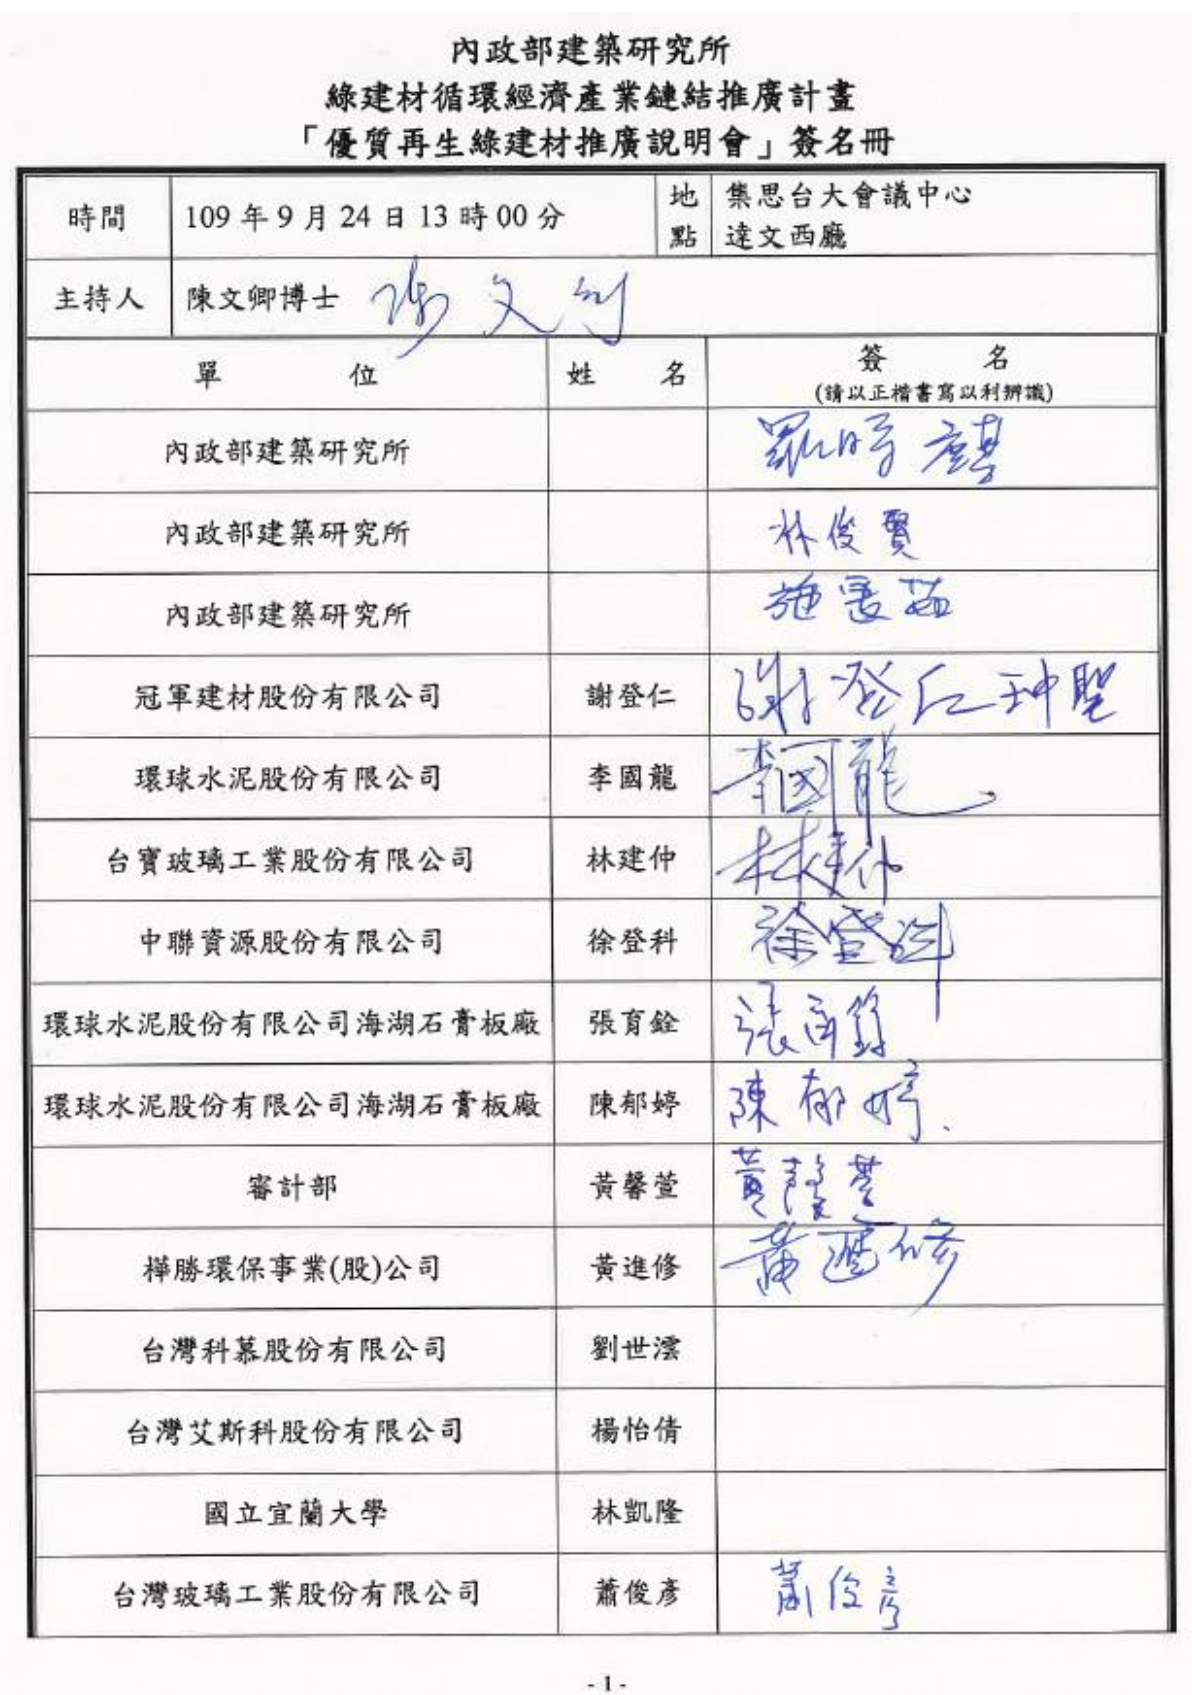 內政部建築研究所
綠建材循環經濟產業鏈結推廣計畫
「優質再生綠建材推廣說明會」簽名冊
時間 109 年 9 月 24 日 13 時 00 分 地點 集思台大會議中心
達文西廳
主持人 陳文卿博士 陳文卿
單 位 姓 名 簽 名
(請以正楷書寫以利辨識)
內政部建築研究所 羅時麒
內政部建築研究所 林俊賢
內政部建築研究所
冠軍建材股份有限公司 謝登仁 謝登仁
環球水泥股份有限公司 李國龍 李國龍
台寶玻璃工業股份有限公司 林建仲 林建仲
中聯資源股份有限公司 徐登科 徐登科
環球水泥股份有限公司海湖石膏板廠 張育銓 張育銓
環球水泥股份有限公司海湖石膏板廠 陳郁婷 陳郁婷.
審計部 黃馨萱 黃馨萱
樺勝環保事業(股)公司 黃進修 黃進修
台灣科慕股份有限公司 劉世澐
台灣艾斯科股份有限公司 楊怡倩
國立宜蘭大學 林凱隆
台灣玻璃工業股份有限公司 蕭俊彥 蕭俊彥
- 1 -